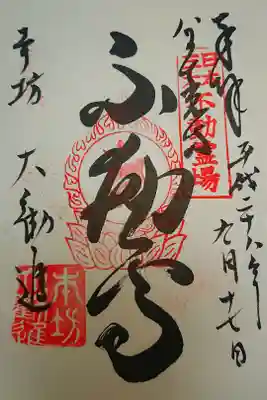 奉拝 平成二十六年九月十七日
不動尊
本坊 大勧進
不動霊場
本坊